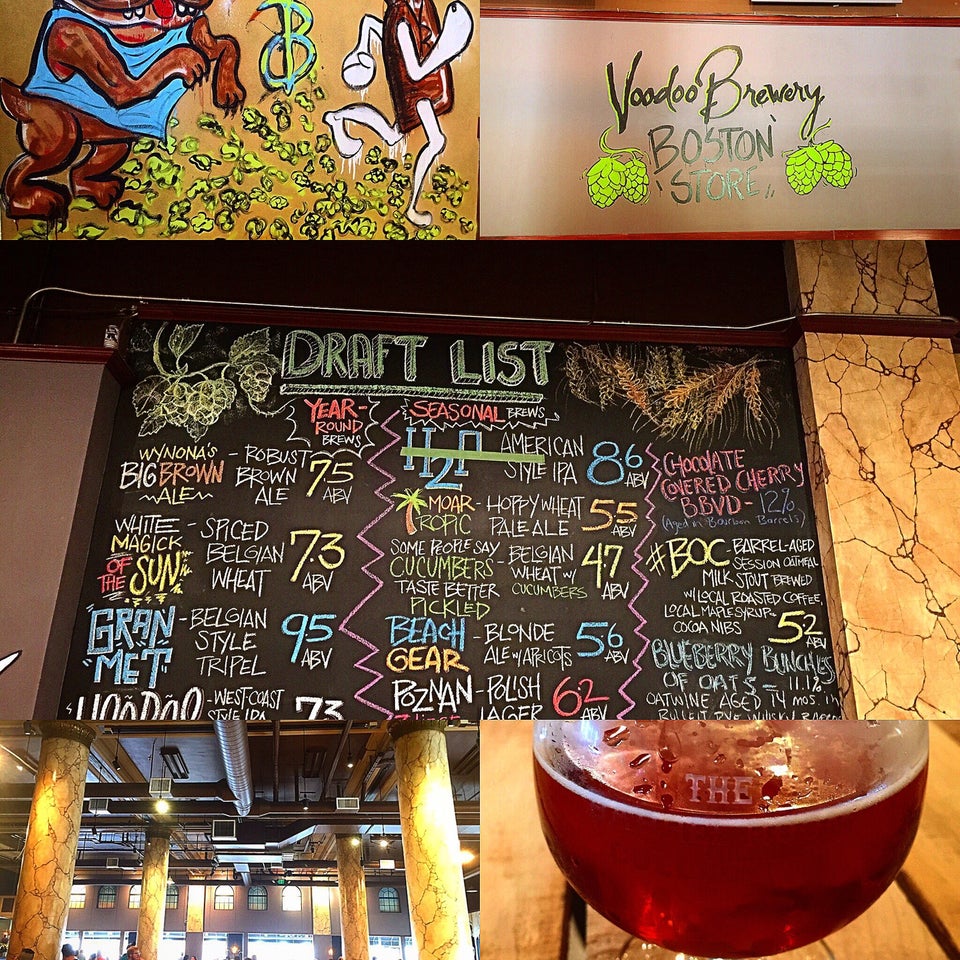 Voodoo Brewery
BOSTON
STORE
DRAFT LIST
YEAR-
ROUND
BREWS
WYNONA'S
BIG BROWN
ALE
- ROBUST
BROWN
ALE
7.5
ABV
WHITE
MAGICK
OF
THE SUN
- SPICED
BELGIAN
WHEAT
7.3
ABV
GRAN
MET
- BELGIAN
STYLE
TRIPEL
9.5
ABV
VOODOO
- WEST COAST
STYLE IPA
7.3
SEASONAL BREWS
H2P
AMERICAN
STYLE IPA
8.6
ABV
MOAR-
TROPIC
- HOPPY WHEAT
PALE ALE
5.5
ABV
SOME PEOPLE SAY
CUCUMBERS
TASTE BETTER
PICKLED
- BELGIAN
WHEAT W/
CUCUMBERS
4.7
ABV
BEACH
GEAR
- BLONDE
ALE W/ APRICOTS
5.6
ABV
POZNAN
- POLISH
LAGER
6.2
ABV
CHOCOLATE
COVERED CHERRY
BBVD - 12%
(Aged in Bourbon Barrels)
#BOC BARREL-AGED
SESSION OATMEAL
MILK STOUT BREWED
W/ LOCAL ROASTED COFFEE,
LOCAL MAPLE SYRUP,
COCOA NIBS
5.2
ABV
BLUEBERRY BUNCHES
OF OATS - 11.1%
OATWINE AGED 14 MOS. IN
BULLEIT RYE WHISKY BARRELS
THE